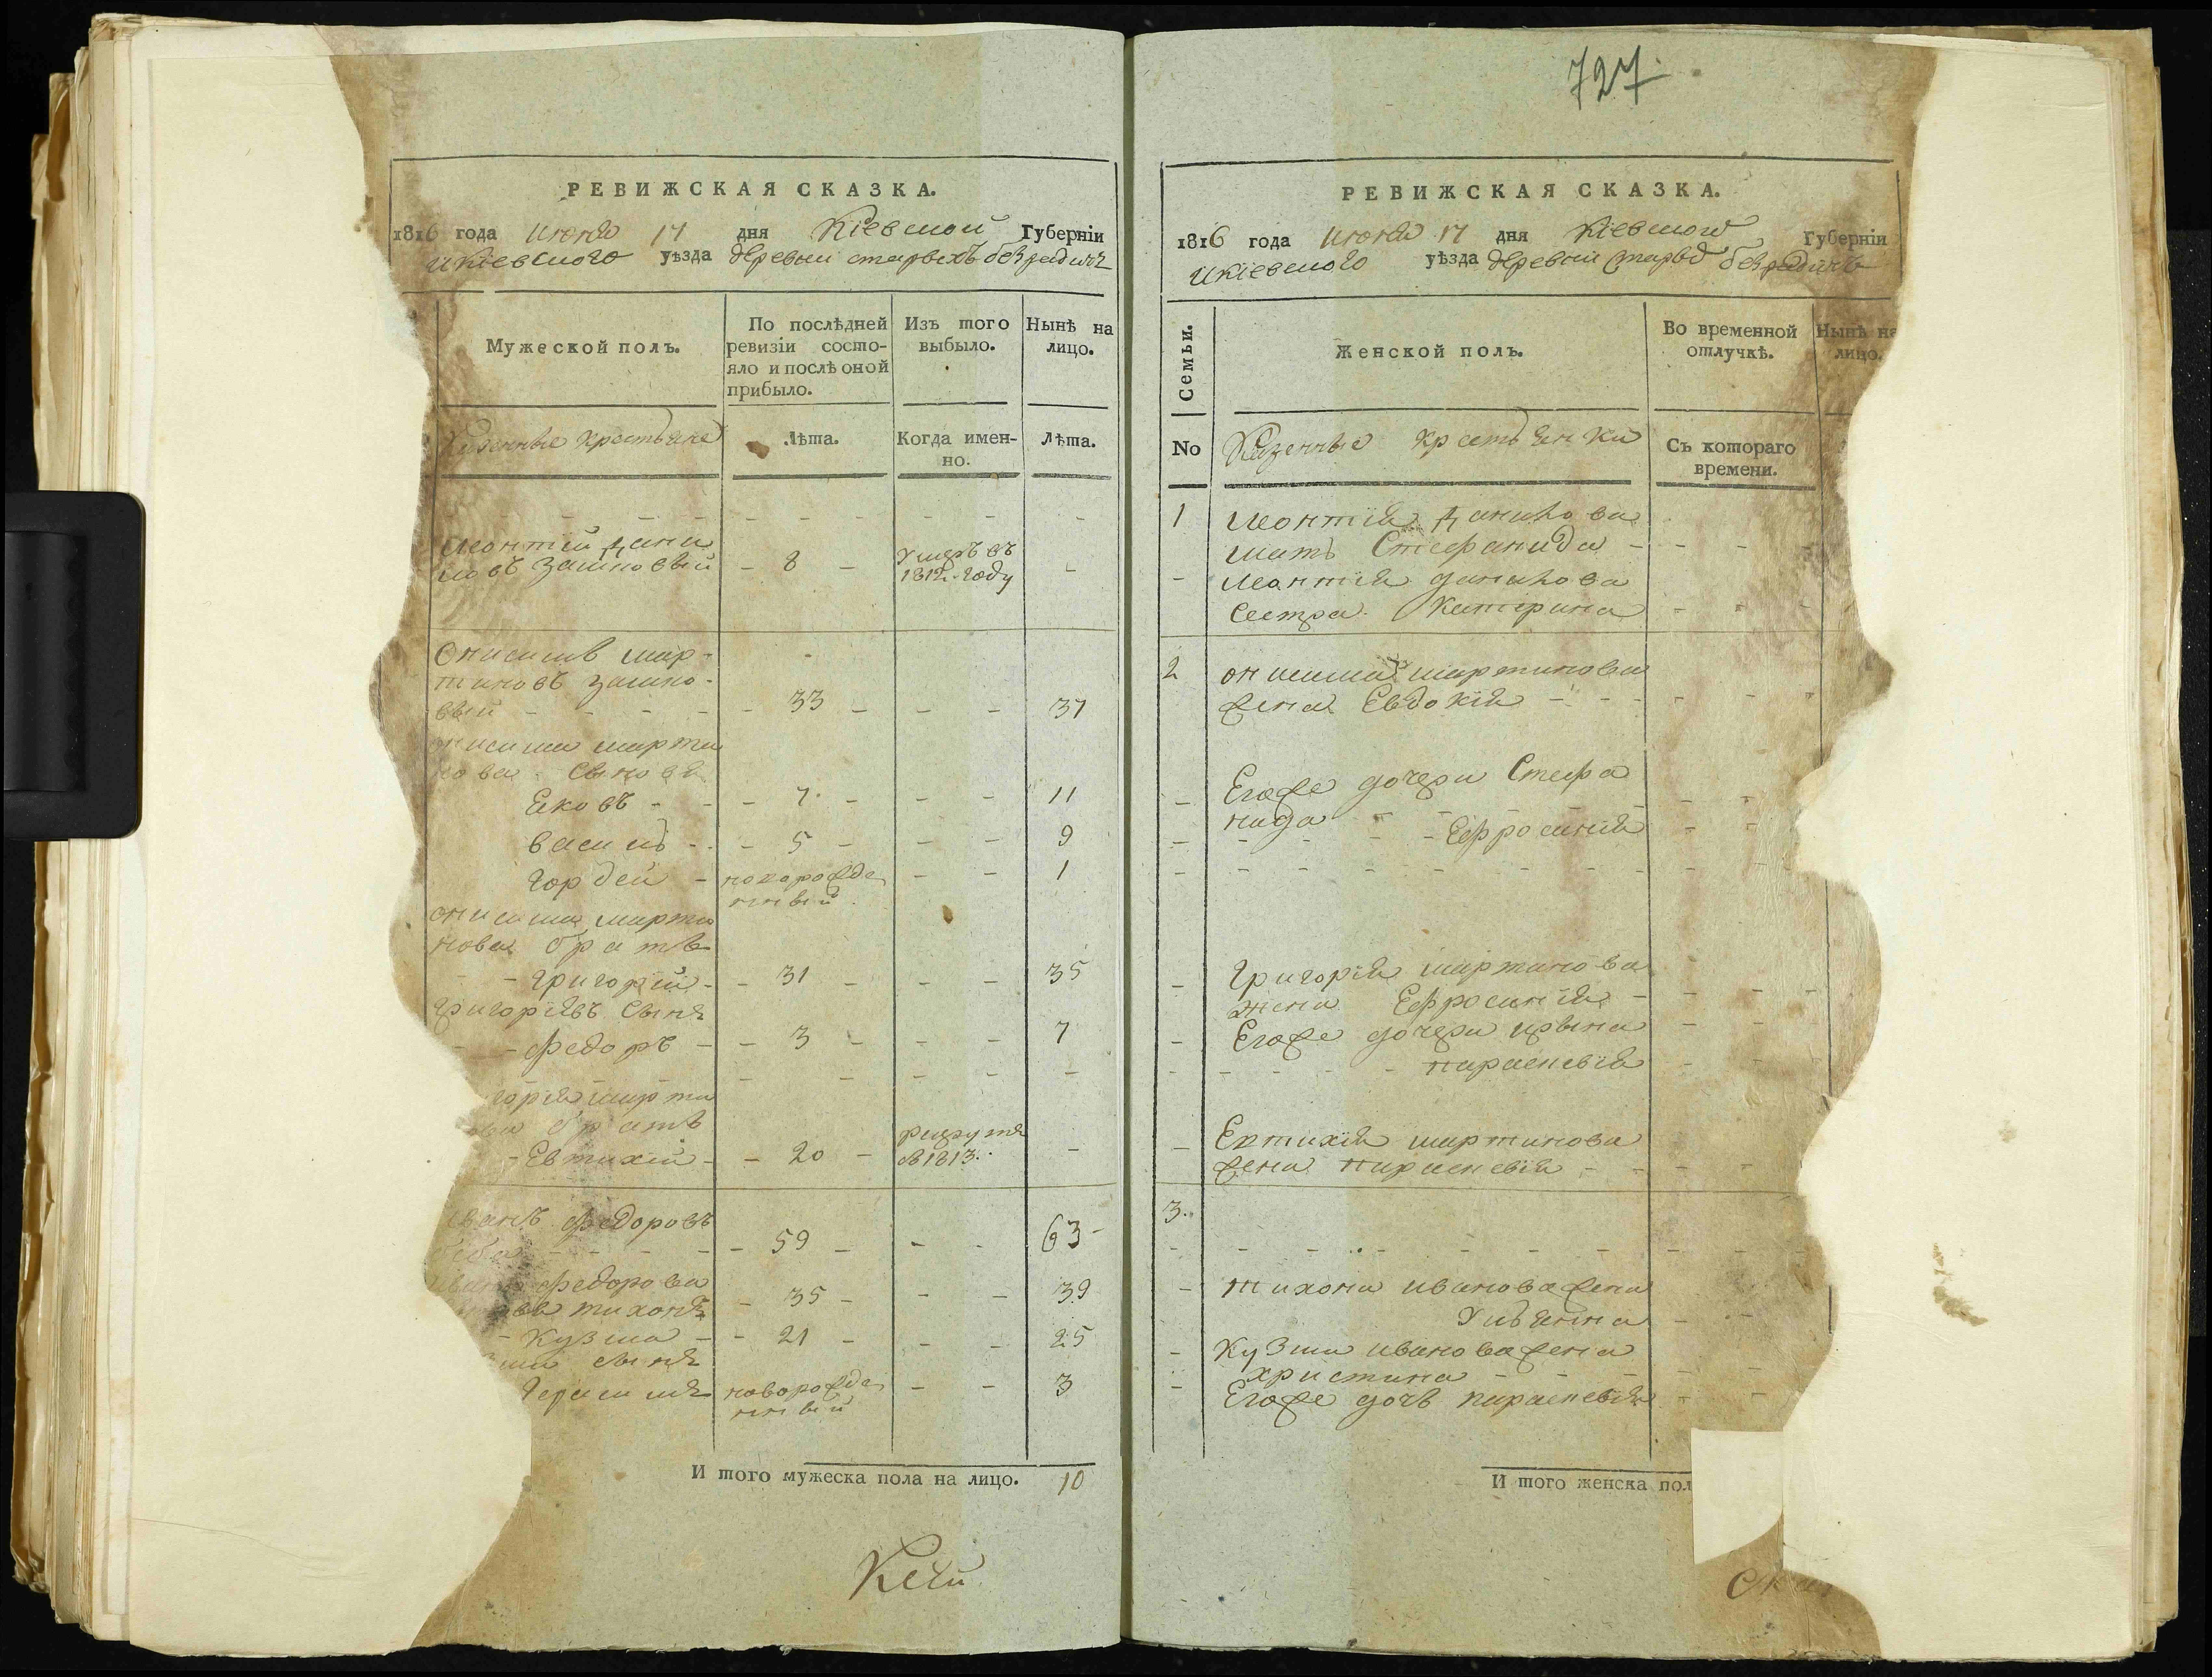 727
РЕВИЖСКАЯ СКАЗКА.
1816 года июня 17 дня Кіевской Губерніи
и Кіевского уѣзда деревни старыхъ безрадичъ
Мужеской полъ.
По послѣдней ревизіи состо-
яло и послѣ оной
прибыло.
Изъ того
выбыло.
Нынѣ на
лицо.
Казенные крестьяне
Лѣта.
Когда имен-
но.
Лѣта.
Леонтий Дани
ловъ 8 Умеръ въ
1812 году
Онисимъ мар-
тиновъ
33 37
онисима марти
нова Сыновя
Яковъ 7 11
василь 5 9
Гордей новорожде
нный 1
онисима марти
нова братъ
Григорій 31 35
Григоріявъ Сынъ
Федоръ 3 7
горія марти
братъ
Евтихій 20 рекрутъ
в 1813
Иванъ Федоровъ
59 63
Ивана Федорова
тихонъ 35 39
Кузма 21 25
сынъ
Герасимъ новорожде
нный 3
И того мужеска пола на лицо. 10
РЕВИЖСКАЯ СКАЗКА.
1816 года июня 17 дня Кіевской Губерніи
и Кіевского уѣзда деревни Старыхъ безрадичъ
Семьи.
Женской полъ.
Во временной
отлучкѣ.
Нынѣ на
лицо.
No
Казенные крестьянки
Съ котораго
времени.
1 Леонтія Данилова
мать Стефанида
Леонтія данилова
Сестра Катерина
2 онисима мартинова
жена Евдокія
Его же дочери Стефа
нида
Ефросинія
Григорія мартинова
жена Ефросинія
Его же дочери ирына
параскевія
Евтихія мартинова
жена параскевія
3.
тихона иванова жена
Ульянна
Кузми иванова жена
христина
Его же дочъ параскевія
И того женска пол